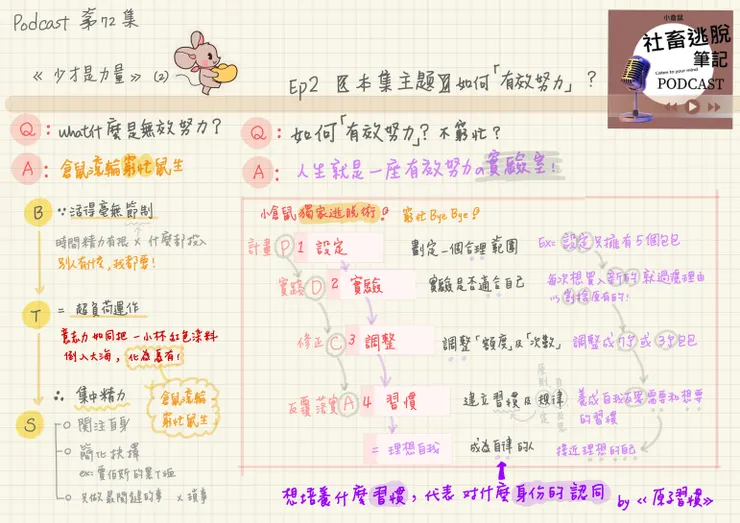 Podcast 第72集
《少才是力量》(2)
Ep2 〖本集主題〗如何「有效努力」?
小倉鼠
社畜逃脫
筆記
Listen to your mind
PODCAST
Q: what什麼是無效努力?
A: 倉鼠滾輪窮忙鼠生
B ∵活得毫無節制
時間精力有限 x 什麼都投入
別人有什麼,我都要!
T = 超負荷運作
意志力如同把一小杯紅色染料
倒入大海,化為烏有!
∴ 集中精力
S
倉鼠滾輪
窮忙鼠生
關注自身
簡化抉擇
ex: 賈伯斯的黑T恤
只做最關鍵的事 x 瑣事
Q: 如何「有效努力」? 不窮忙?
A: 人生就是一座有效努力の實驗室!
小倉鼠獨家逃脫術: 窮忙Bye Bye!
計畫 P 1 設定 劃定一個合理範圍 Ex= 設定只擁有5個包包
實踐 D 2 實驗 實驗是否適合自己 每次想買入新的就過濾理由
以割捨原有的!
修正 C 3 調整 調整「額度」及「次數」 調整成7個或3個包包
反覆落實 A 4 習慣 建立習慣及規律 養成自我需要和想要
的習慣
= 理想自我 成為自律的人 接近理想的自己
想培養什麼習慣,代表對什麼身份的認同
by《原子習慣》